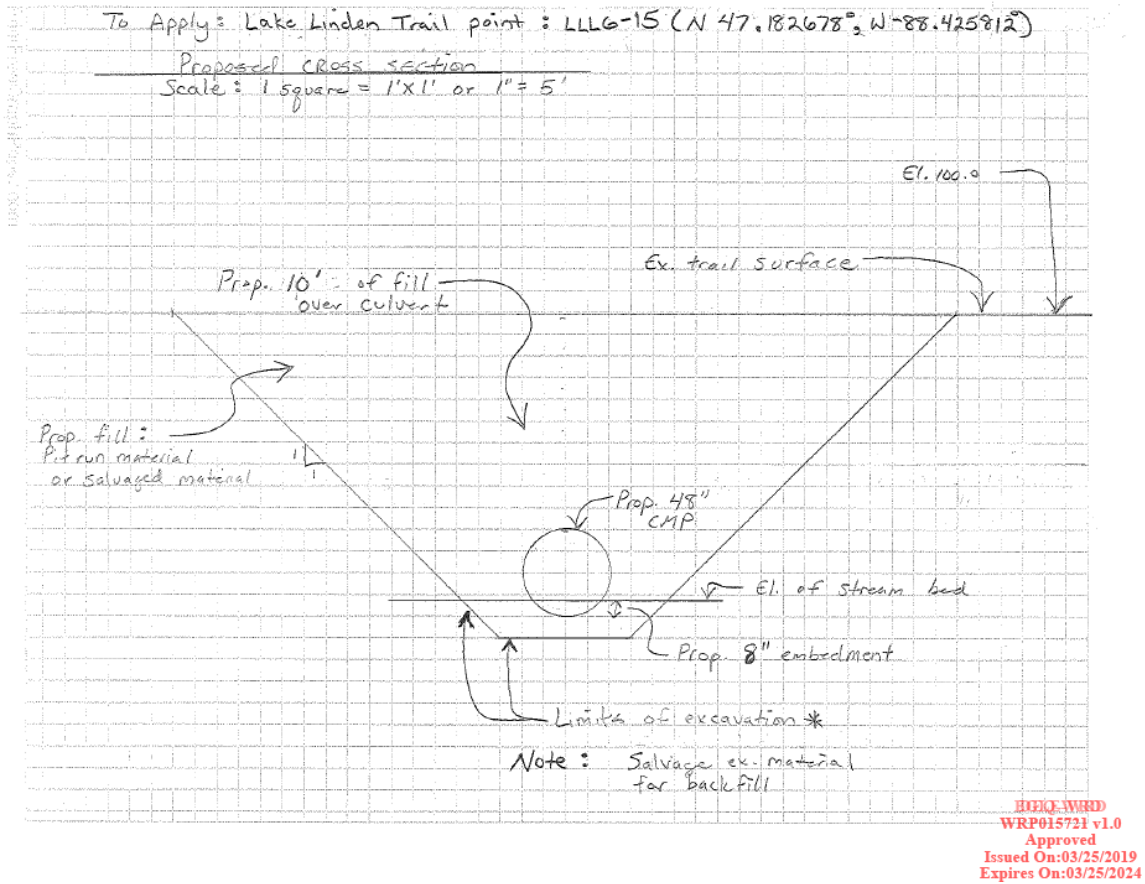 To Apply: Lake Linden Trail point: LLL6-15 (N 47.182678°, W-88.425812°)
Proposed CROSS SECTION
Scale: 1 square = 1'x1' or 1"= 5'
El. 100.0
Ex. trail surface
Prop. 10' - of fill
over culvert
Prop. fill:
Pit run material
or salvaged material
1
1
Prop. 48"
CMP
El. of stream bed
Prop. 8" embedment
Limits of excavation *
Note: Salvage ex. material
for backfill
WRD
WRP015721 v1.0
Approved
Issued On:03/25/2019
Expires On:03/25/2024